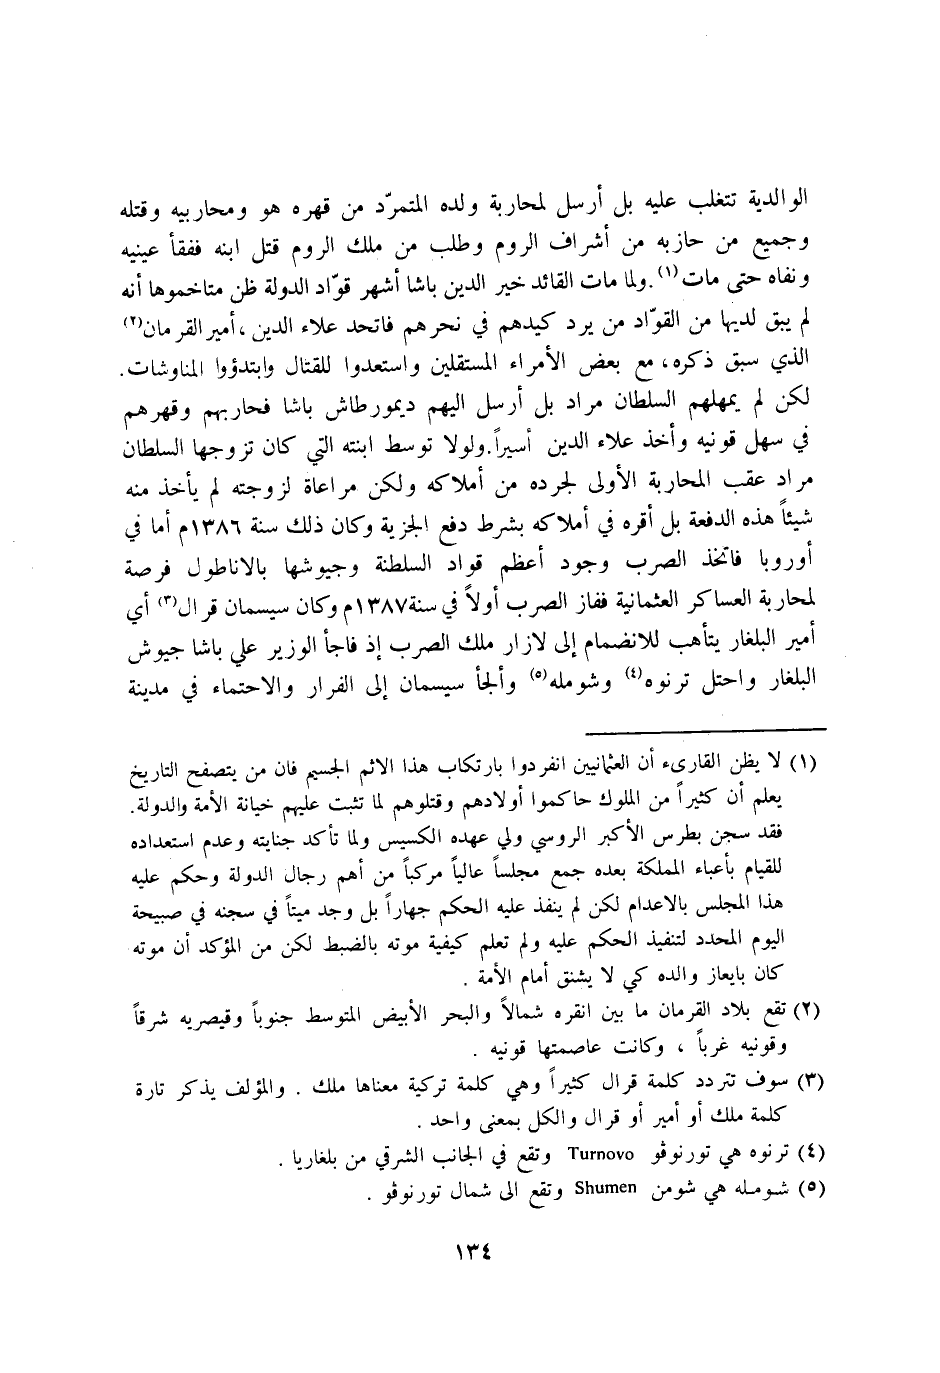 الوالدية تتغلب عليه بل أرسل لمحاربة ولده المتمرّد من قهره هو ومحاربيه وقتله
وجميع من حازبه من أشراف الروم وطلب من ملك الروم قتل ابنه ففقأ عينيه
ونفاه حتى مات(١). ولما مات القائد خير الدين باشا أشهر قوّاد الدولة ظن متاخموها أنه
لم يبق لديها من القوّاد من يرد كيدهم في نحرهم فاتحد علاء الدين، أمير القرمان(٢)
الذي سبق ذكره، مع بعض الأمراء المستقلين واستعدوا للقتال وابتدؤوا المناوشات.
لكن لم يمهلهم السلطان مراد بل أرسل اليهم ديمورطاش باشا فحاربهم وقهرهم
في سهل قونيه وأخذ علاء الدين أسيراً. ولولا توسط ابنته التي كان تزوجها السلطان
مراد عقب المحاربة الأولى لجرده من أملاكه ولكن مراعاة لزوجته لم يأخذ منه
شيئاً هذه الدفعة بل أقره في أملاكه بشرط دفع الجزية وكان ذلك سنة ١٣٨٦م أما في
أوروبا فاتخذ الصرب وجود أعظم قواد السلطنة وجيوشها بالاناطول فرصة
لمحاربة العساكر العثمانية ففاز الصرب أولاً في سنة ١٣٨٧م وكان سيسمان قرال(٣) أي
أمير البلغار يتأهب للانضمام إلى لازار ملك الصرب إذ فاجأ الوزير علي باشا جيوش
البلغار واحتل ترنوه(٤) وشومله(٥) وألجأ سيسمان إلى الفرار والاحتماء في مدينة
(١) لا يظن القارىء أن العثمانيين انفردوا بارتكاب هذا الاثم الجسيم فان من يتصفح التاريخ
يعلم أن كثيراً من الملوك حاكموا أولادهم وقتلوهم لما تثبت عليهم خيانة الأمة والدولة.
فقد سجن بطرس الأكبر الروسي ولي عهده الكسيس ولما تأكد جنايته وعدم استعداده
للقيام بأعباء المملكة بعده جمع مجلساً عالياً مركباً من أهم رجال الدولة وحكم عليه
هذا المجلس بالاعدام لكن لم ينفذ عليه الحكم جهاراً بل وجد ميتاً في سجنه في صبيحة
اليوم المحدد لتنفيذ الحكم عليه ولم تعلم كيفية موته بالضبط لكن من المؤكد أن موته
كان بايعاز والده كي لا يشنق أمام الأمة .
(٢) تقع بلاد القرمان ما بين انقره شمالاً والبحر الأبيض المتوسط جنوباً وقيصريه شرقاً
وقونيه غرباً ، وكانت عاصمتها قونيه .
(٣) سوف تتردد كلمة قرال كثيراً وهي كلمة تركية معناها ملك . والمؤلف يذكر تارة
كلمة ملك أو أمير أو قرال والكل بمعنى واحد .
(٤) ترنوه هي تورنوڤو Turnovo وتقع في الجانب الشرقي من بلغاريا .
(٥) شومله هي شومن Shumen وتقع الى شمال تورنوڤو .
١٣٤